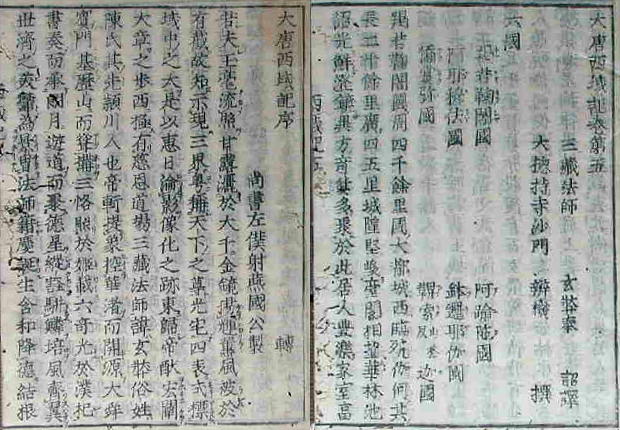 大唐西域記卷第五
三藏法師 玄奘奉 詔譯
大總持寺沙門 辯機 撰
六國
羯若鞠闍國 阿踰陀國
阿耶穆佉國 鉢邏耶伽國
憍賞彌國 鞞索迦國
羯若鞠闍國周四千餘里國大都城西臨殑伽河其
長二十餘里廣四五里城隍堅峻臺閣相望華林池
沼光鮮澄鏡異方奇貨多聚於此居人豐樂家室富
大唐西域記序
尚書左僕射燕國公製 轉
若夫玉毫流照甘露灑於大千金鏡揚輝薰風被於
有截故知示現三界粤稱天下之尊光宅四表式標
域中之大是以惠日淪影像化之跡東歸帝猷宏闡
大章之步西極有慈恩道場三藏法師諱玄奘俗姓
陳氏其先頴川人也帝軒提象控華渚而開源大舜
賓門基歷山而聳構三恪照於姬載六奇光於漢祀
書奏而承朗月遊道而聚德星縱壑駢鱗培風齊翼
世濟之美鬱為景冑法師籍慶誕生含和降德結根